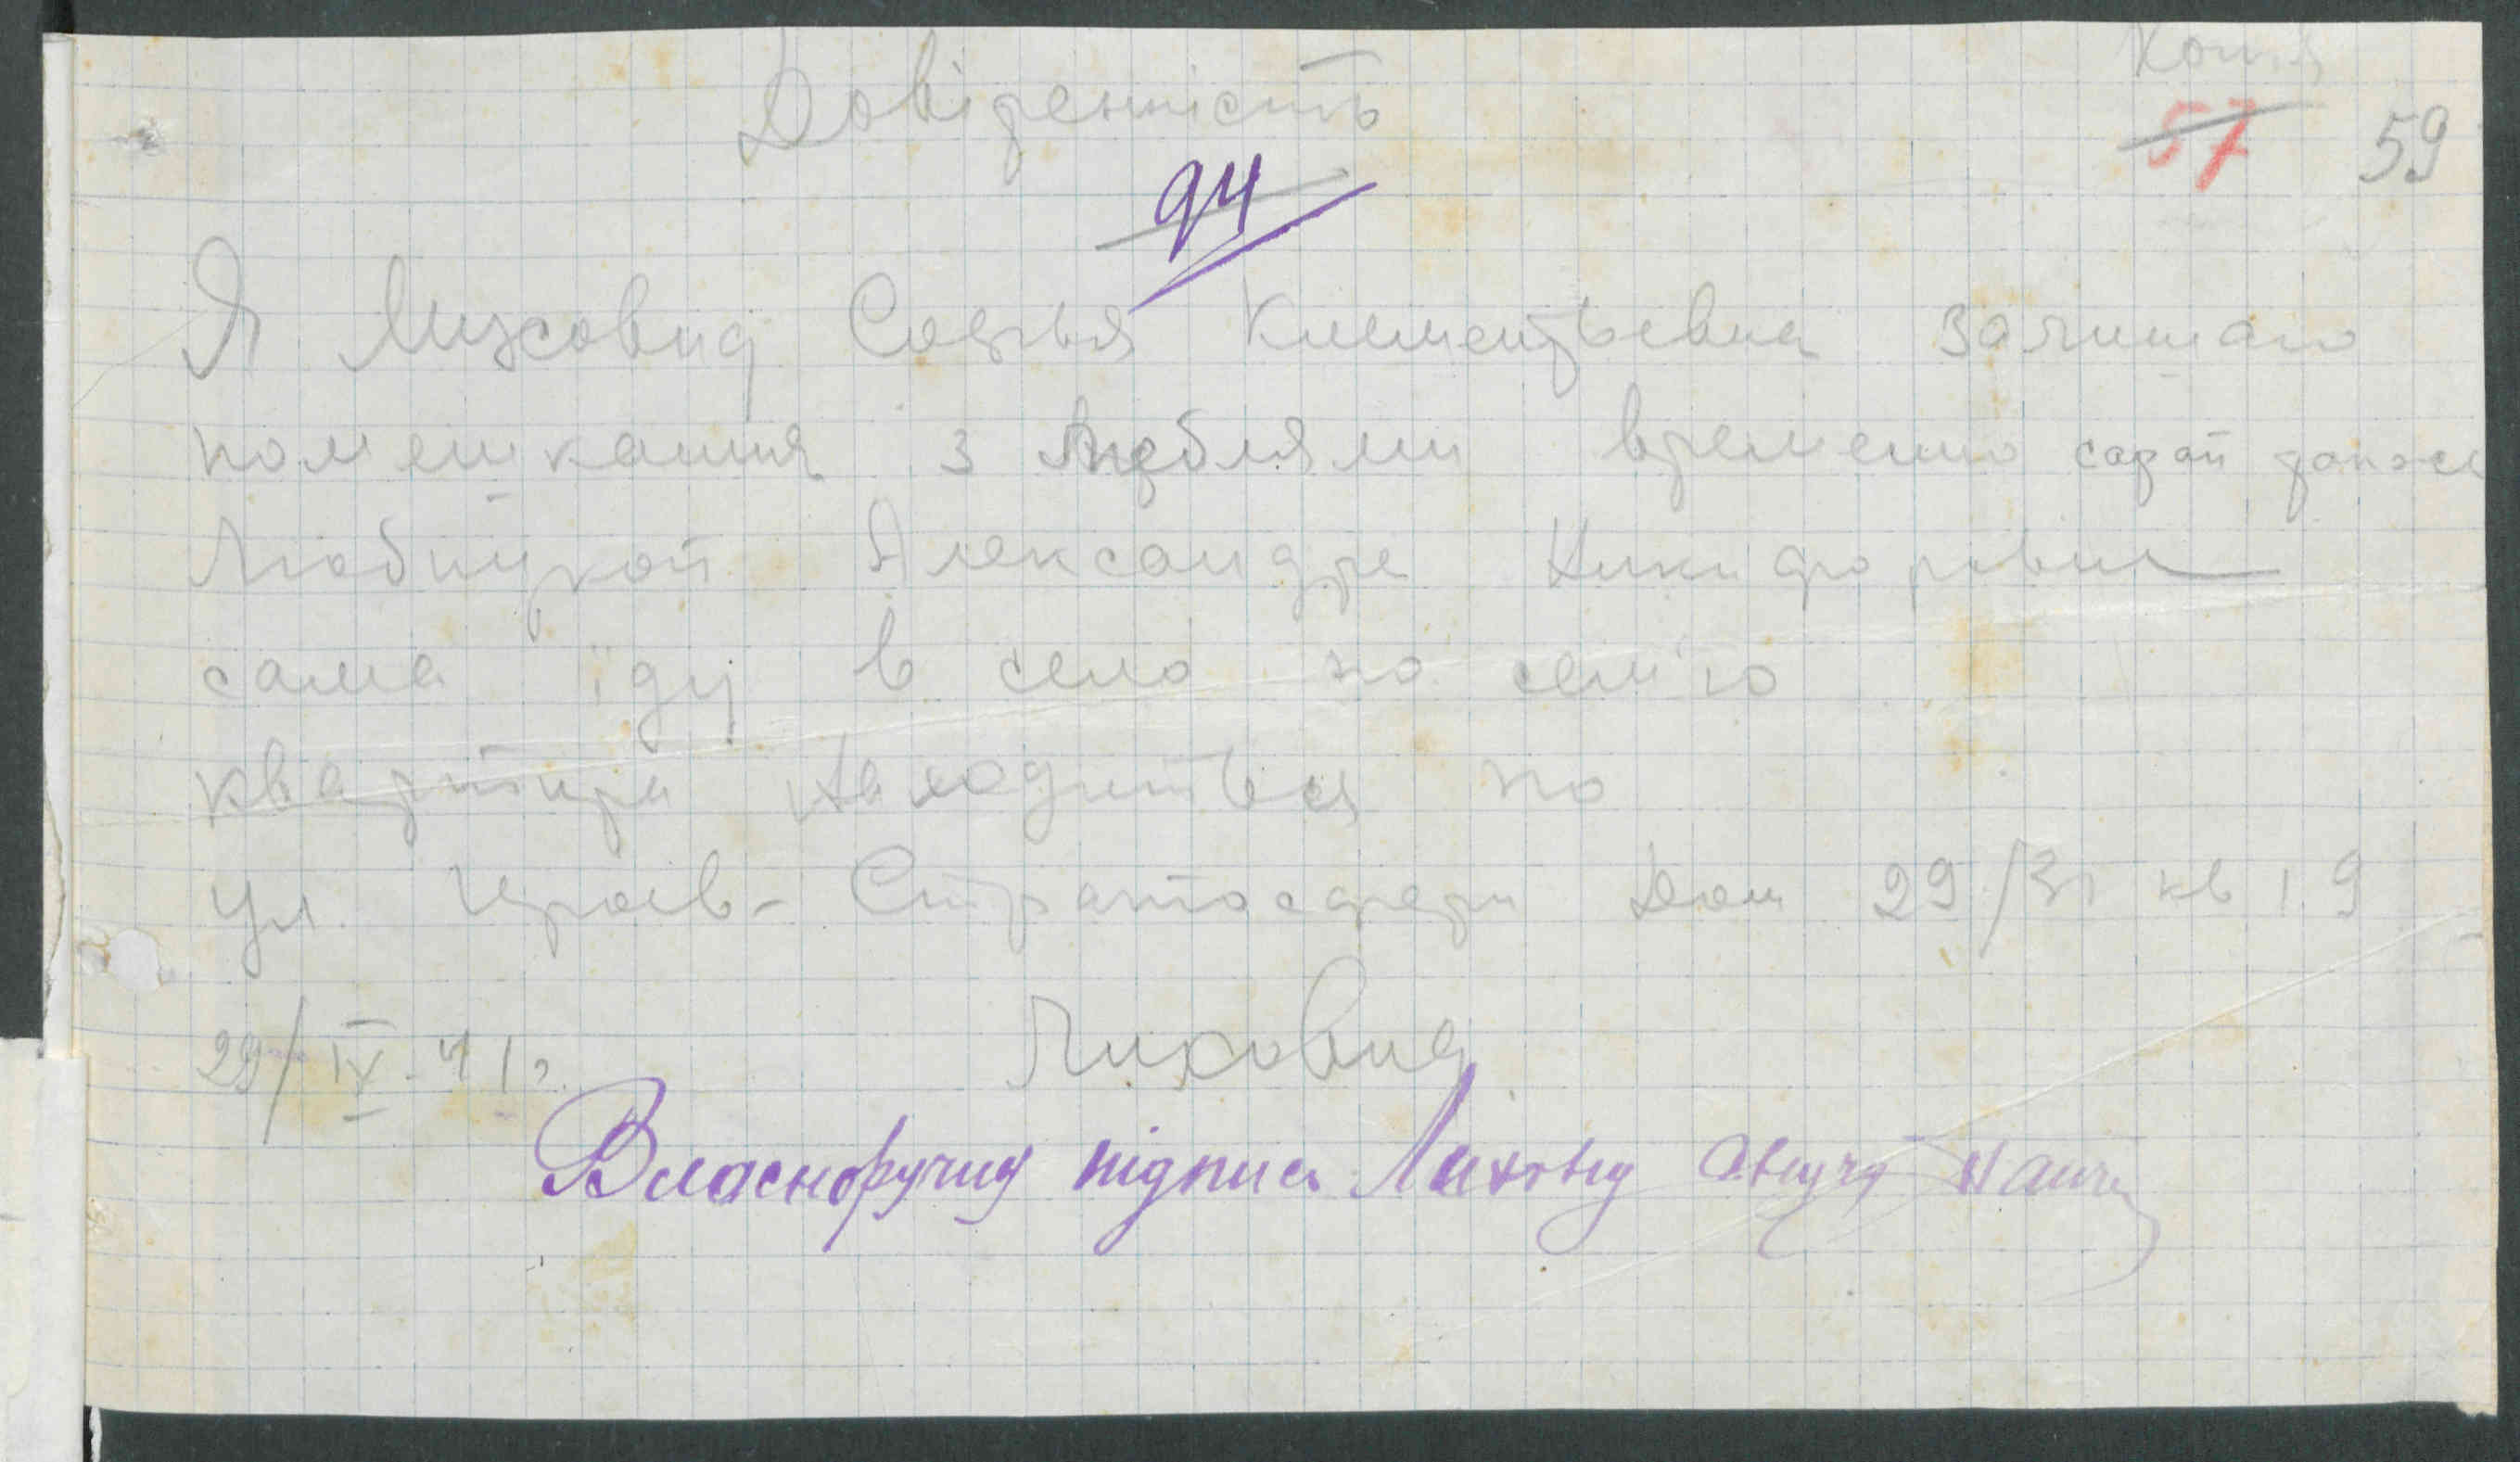 Копія
Довіренність
57 59
94
Я Лиховид Софья Климентьевна залишаю
помешкання з меблями временно сарай также
Любицкой Александре Никифоровне
сама їду в село по сем'ю
квартира находиться по
ул. Героев-Стратосфери Дом 29/31 кв 19
29/IX-41г. Лиховид
Власноручну підпись Лиховид